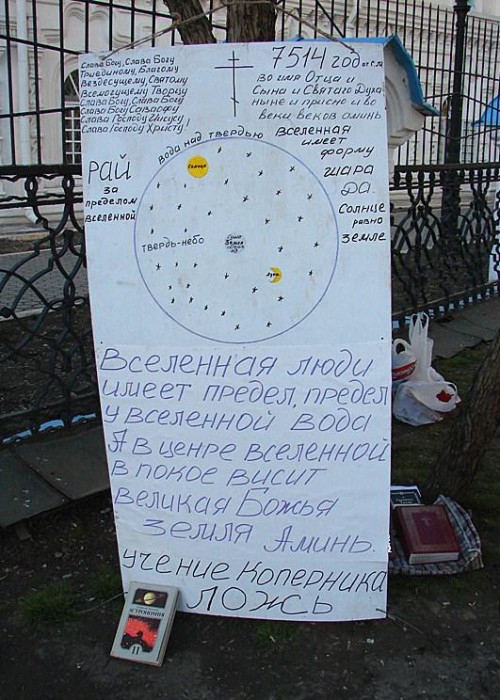 Слава Богу, Слава Богу
Триединому, Благому
Вездесущему Святому
Всемогущему Творцу
Слава Богу, Слава Богу
Слава Богу Саваофу
Слава Господу Иисусу
Слава Господу Христу!
7514 год от С.М.
во имя Отца и
Сына и Святаго Духа
ныне и присно и во
веки веков аминь
Вселенная
имеет
форму
шара
да.
Солнце
равно
Земле
РАЙ
за
пределом
вселенной
вода над твердью
Солнце
твердь-небо
Земля
луна
Вселенная люди
имеет предел, предел
у вселенной вода
А в ценре вселенной
в покое висит
великая Божья
Земля Аминь.
учение Коперника
ЛОЖЬ
11